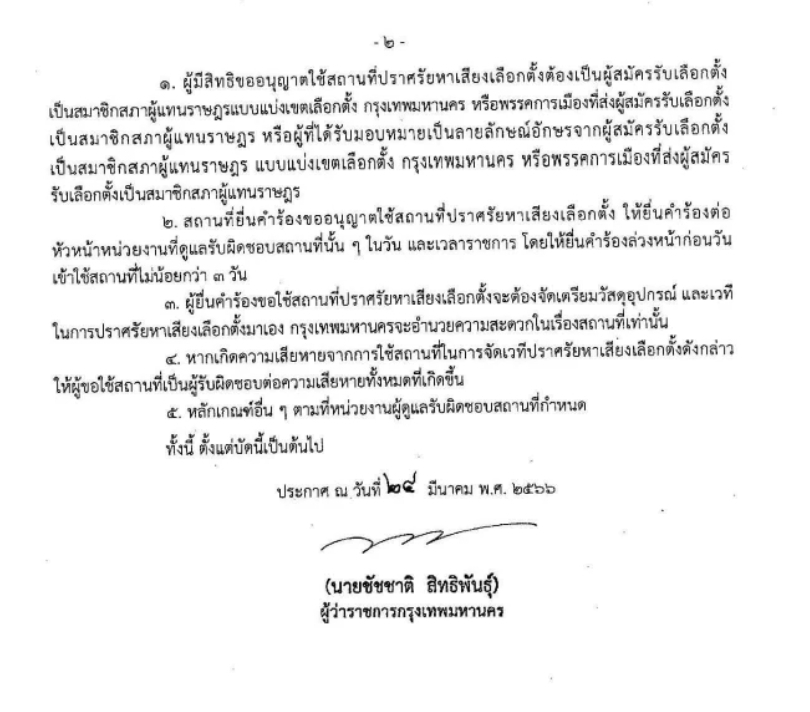 - ๒ -
๑. ผู้มีสิทธิขออนุญาตใช้สถานที่ปราศรัยหาเสียงเลือกตั้งต้องเป็นผู้สมัครรับเลือกตั้ง
เป็นสมาชิกสภาผู้แทนราษฎรแบบแบ่งเขตเลือกตั้ง กรุงเทพมหานคร หรือพรรคการเมืองที่ส่งผู้สมัครรับเลือกตั้ง
เป็นสมาชิกสภาผู้แทนราษฎร หรือผู้ที่ได้รับมอบหมายเป็นลายลักษณ์อักษรจากผู้สมัครรับเลือกตั้ง
เป็นสมาชิกสภาผู้แทนราษฎร แบบแบ่งเขตเลือกตั้ง กรุงเทพมหานคร หรือพรรคการเมืองที่ส่งผู้สมัคร
รับเลือกตั้งเป็นสมาชิกสภาผู้แทนราษฎร
๒. สถานที่ยื่นคำร้องขออนุญาตใช้สถานที่ปราศรัยหาเสียงเลือกตั้ง ให้ยื่นคำร้องต่อ
หัวหน้าหน่วยงานที่ดูแลรับผิดชอบสถานที่นั้น ๆ ในวัน และเวลาราชการ โดยให้ยื่นคำร้องล่วงหน้าก่อนวัน
เข้าใช้สถานที่ไม่น้อยกว่า ๓ วัน
๓. ผู้ยื่นคำร้องขอใช้สถานที่ปราศรัยหาเสียงเลือกตั้งจะต้องจัดเตรียมวัสดุอุปกรณ์ และเวที
ในการปราศรัยหาเสียงเลือกตั้งมาเอง กรุงเทพมหานครจะอำนวยความสะดวกในเรื่องสถานที่เท่านั้น
๔. หากเกิดความเสียหายจากการใช้สถานที่ในการจัดเวทีปราศรัยหาเสียงเลือกตั้งดังกล่าว
ให้ผู้ขอใช้สถานที่เป็นผู้รับผิดชอบต่อความเสียหายทั้งหมดที่เกิดขึ้น
๕. หลักเกณฑ์อื่น ๆ ตามที่หน่วยงานผู้ดูแลรับผิดชอบสถานที่กำหนด
ทั้งนี้ ตั้งแต่บัดนี้เป็นต้นไป
ประกาศ ณ วันที่ ๒๙ มีนาคม พ.ศ. ๒๕๖๖
(นายชัชชาติ สิทธิพันธุ์)
ผู้ว่าราชการกรุงเทพมหานคร